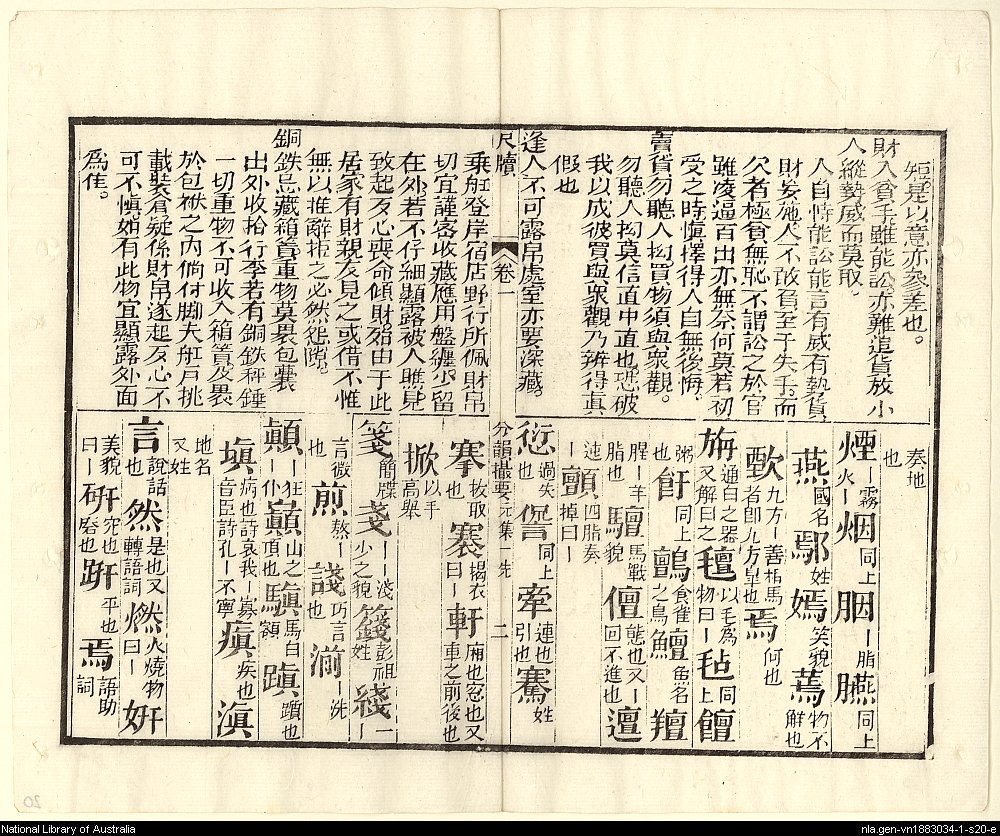 短是以意亦參差也。
財入貧手雖能訟亦難追貨放小
人縱勢威而莫取。
人自恃能訟能言有威有勢貨
財妄施人不敢負至于失手而
欠者極貧無恥不謂訟之於官
雖凌逼百出亦無奈何莫若初
受之時慎擇得人自無後悔。
賣貨勿聽人拘買物須與衆觀。
勿聽人拘莫信直中直也恐破
我以成彼買與衆觀乃辨得真
假也
逢人不可露帛處室亦要深藏。
尺牘 卷一
乘舡登岸宿店野行所佩財帛
切宜謹密收藏應用盤纏少留
在外若不仔細顯露被人瞧見
致起歹心喪命傾財殆由于此
居家有財親友見之或借不惟
無以推辭拒之必然怨隙。
銅鉄忌藏箱簀重物莫裹包囊
出外收拾行李若有銅鉄秤錘
一切重物不可收入箱簀及裹
於包袱之內倘付脚夫舡戶挑
載裝倉疑係財帛遂起歹心不
可不慎如有此物宜顯露外面
爲佳。
奏地也
煙丨霧火丨烟同上胭丨脂臙同上
燕國名鄢姓嫣笑貌蔫物不鮮也
歅九方丨善相馬者卽九方皐也焉何也
旃通白之器又解曰之氈以毛爲物曰丨毡同上饘
粥也飦同上鸇食雀之鳥鱣魚名羶
腥丨羊脂也驙馬載貌儃態也又丨回不進也邅
迍丨顫四脂奏掉曰丨
愆過失也諐同上牽連也引也騫姓
分韻撮要元集一先 二
搴拔取也褰揭衣曰丨軒廂也忽也又車之前後也
掀以手高舉
箋簡牒戔丨丨淺少之貌籛彭祖姓綫一丨
言微也煎熬丨諓巧言也湔丨洗
顛丨狂丨仆巔山之頂也驥馬白額蹎丨躓也
塡病也詩哀我丨寡音臣詩孔丨不寧瘨疾也滇
地名又姓
言說話也然是也又轉語詞燃火燒物曰丨妍
美貌曰丨研究也磨也趼平也焉語助詞
National Library of Australia
nla.gen-vn1883034-1-s20-e